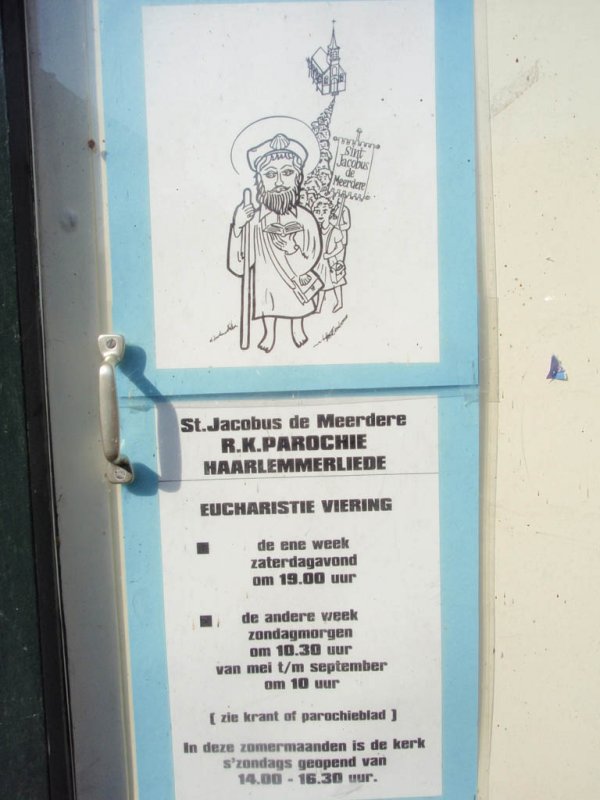 Sint
Jacobus
de
Meerdere
St.Jacobus de Meerdere
R.K.PAROCHIE
HAARLEMMERLIEDE
EUCHARISTIE VIERING
de ene week
zaterdagavond
om 19.00 uur
de andere week
zondagmorgen
om 10.30 uur
van mei t/m september
om 10 uur
[ zie krant of parochieblad ]
In deze zomermaanden is de kerk
s'zondags geopend van
14.00 - 16.30 uur.